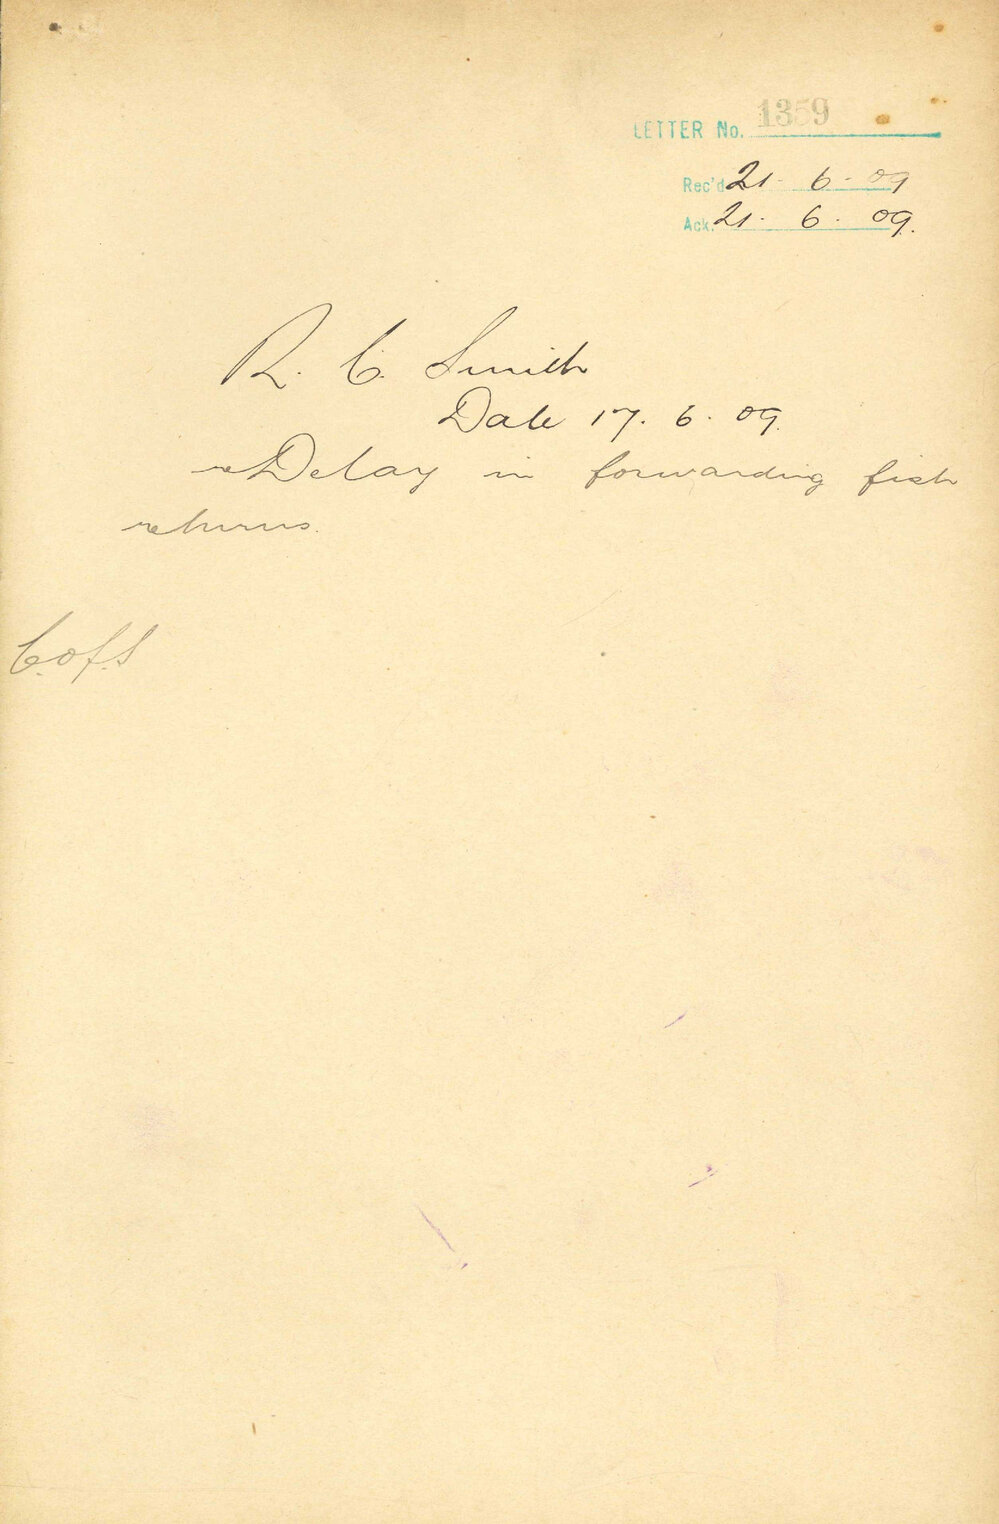 LETTER No. 1359
Rec'd 21. 6. 09
Ack. 21. 6. 09.
R. C. Smith
Date 17. 6. 09.
re Delay in forwarding fish
returns.
C. of S